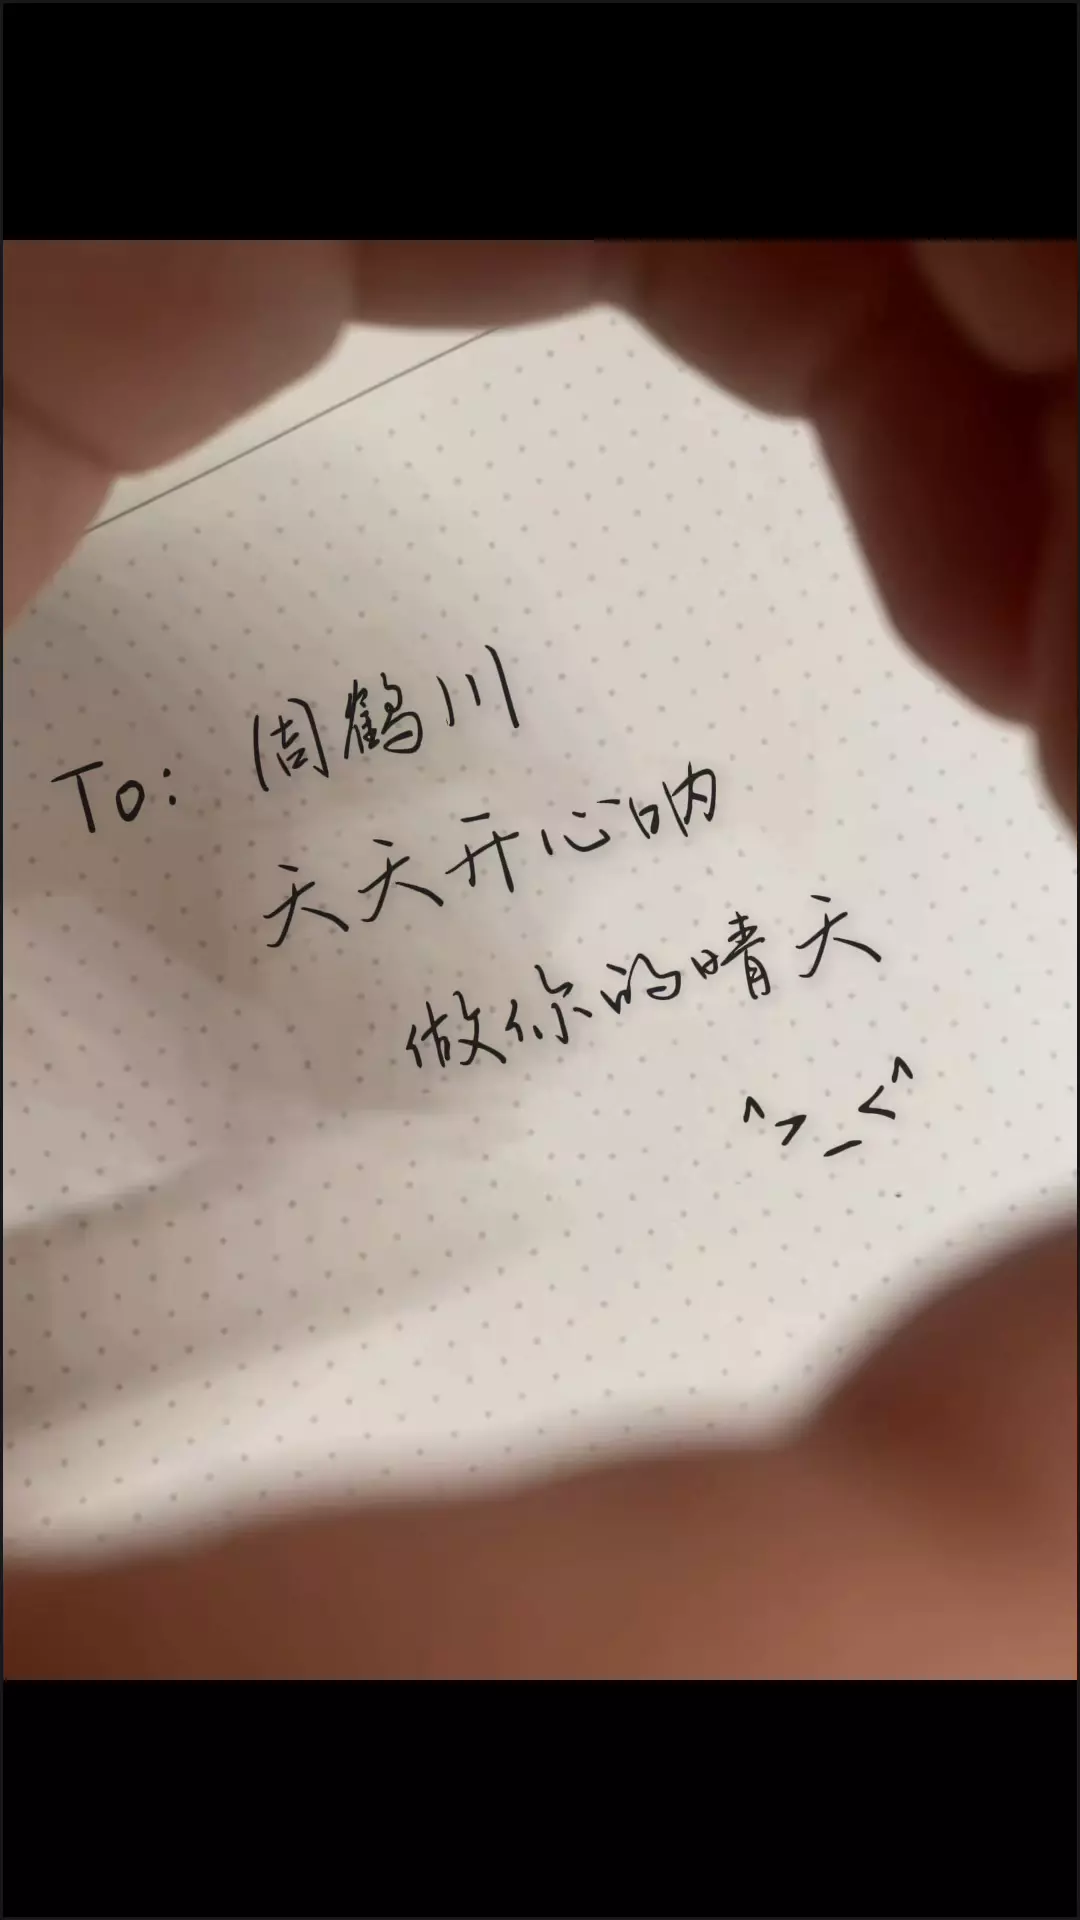 To: 周鹤川
天天开心呐
做你的晴天
^>_<^